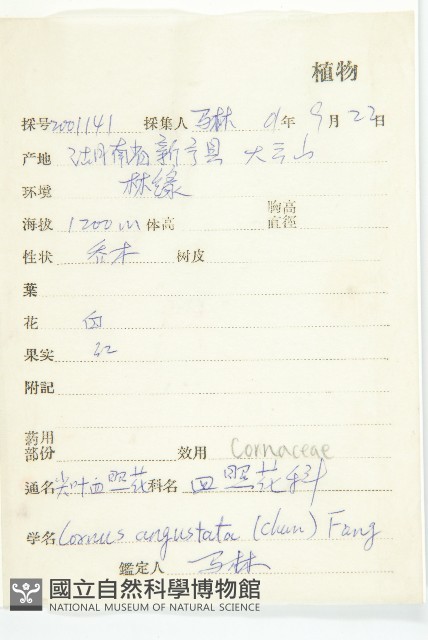 植物
採号2001141 採集人 马林 01年9月22日
产地 湖南省新宁县 大云山
环境 林缘
海拔 1200m 体高 胸高直徑
性状 乔木 树皮
葉
花 白
果实 红
附記
葯用部份 效用 Cornaceae
通名 尖叶四照花 科名 四照花科
学名 Cornus angustata (Chun) Fang
鑑定人 马林
國立自然科學博物館
NATIONAL MUSEUM OF NATURAL SCIENCE